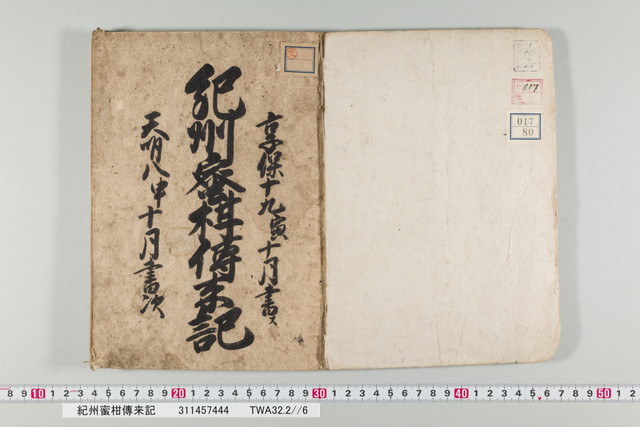 享保十九寅十月書ス
紀州蜜柑傳来記
天明八申十月書次
017
017
80
8 9 10 1 2 3 4 5 6 7 8 9 20 1 2 3 4 5 6 7 8 9 30 1 2 3 4 5 6 7 8 9 40 1 2 3 4 5 6 7 8 9 50 1 2
紀州蜜柑傳来記 311457444 TWA32.2//6